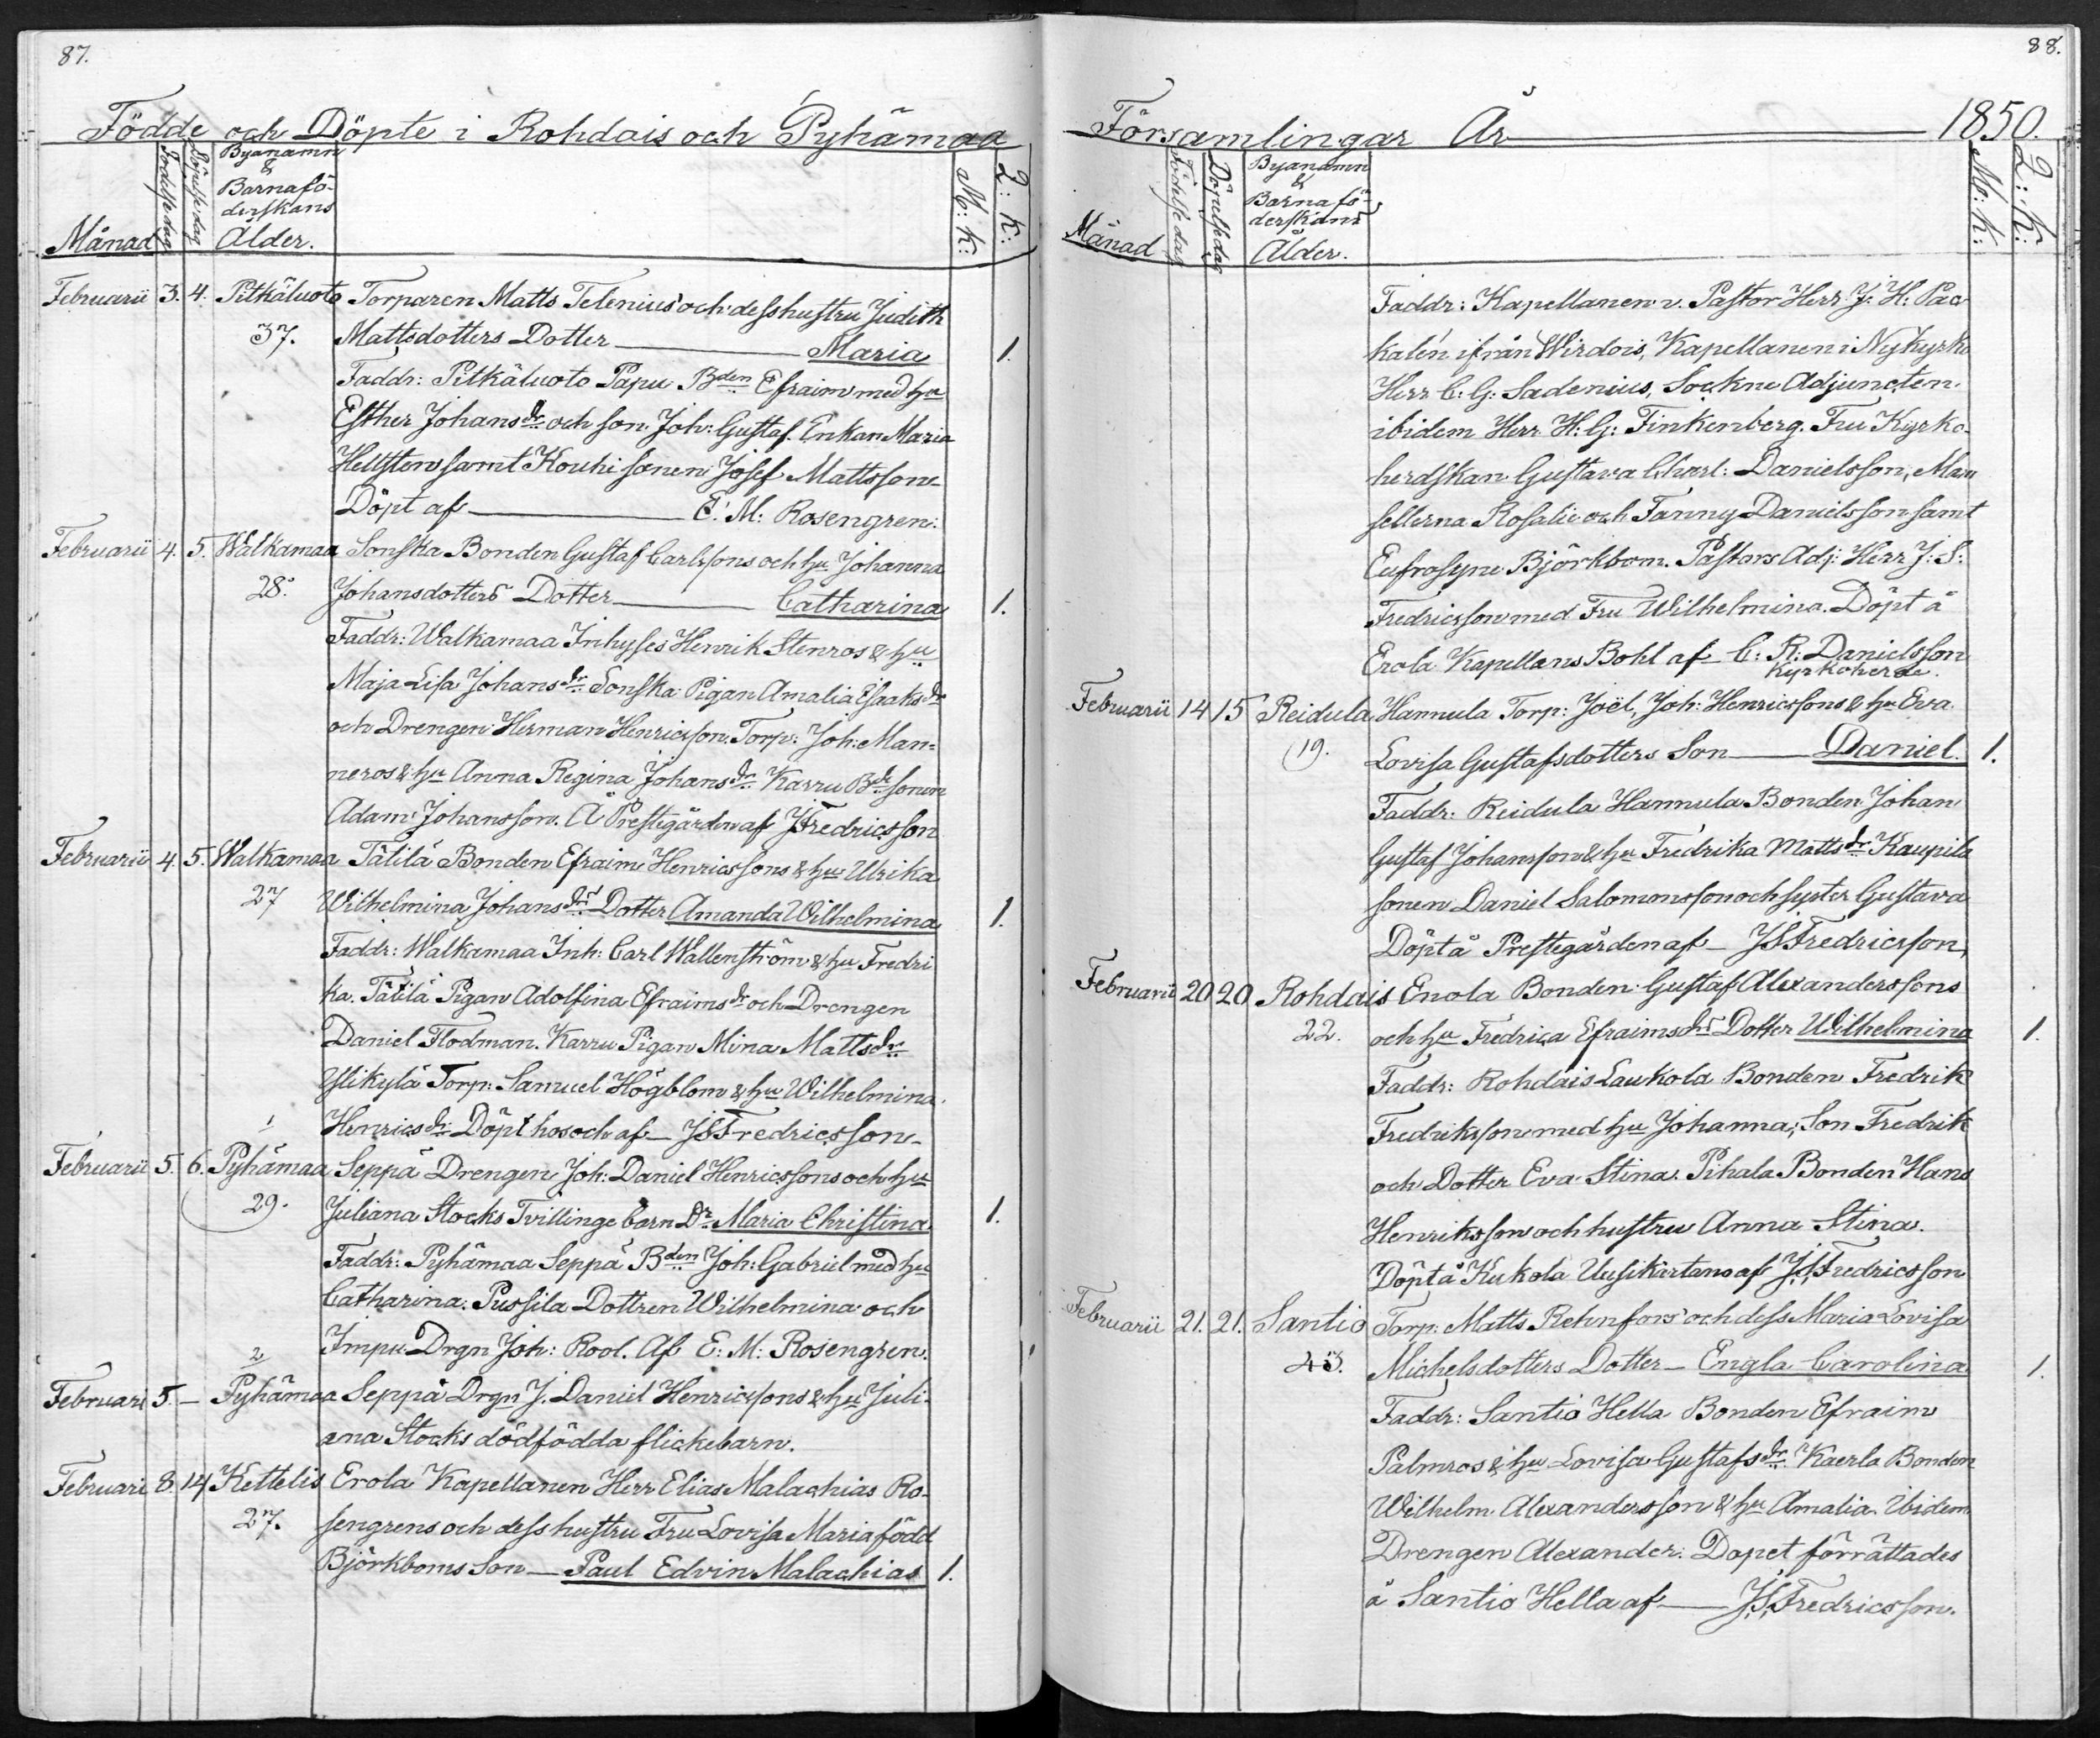 87.
Födde och Döpte i Rohdais och Pyhämaa
Månad
Födelsedag
Döpelsedag
Byanamn
&
Barnafö-
derskans
Ålder.
M: K:
Q: K:
Februarii 3. 4. Pitkäluoto Torparen Matts Telenius och dess hustru Judith
37. Mattsdotters Dotter Maria 1.
Faddr: Pitkäluoto Papu Bden Efraim med hu
Esther Johansdr och son Joh: Gustaf. Enkan Maria
Hellsten samt Kouhi sonen Josef Mattsson
Döpt af E. M: Rosengren.
Februarii 4. 5. Walkamaa Sonska Bonden Gustaf Carlssons och hu Johanna
28. Johansdotters Dotter Catharina 1.
Faddr: Walkamaa Inhyses Henrik Stenros & hu
Maja Lisa Johansdr Sonska Pigan Amalia Esaaksdr
och Drengen Herman Henricsson. Torp: Joh: Man=
neros & hu Anna Regina Johansdr Karru Bde sonen
Adam Johansson. Å Prestegården af JSFredricsson
Februarii 4. 5. Walkamaa Tälilä Bonden Efraim Henricssons & hu Ulrika
27 Wilhelmina Johansdrs Dotter Amanda Wilhelmina 1.
Faddr: Walkamaa Inh: Carl Wallenström & hu Fredri
ka. Tälilä Pigan Adolfina Efraimsdr och Drengen
Daniel Flodman. Karru Pigan Mina Mattsdr
Ylikylä Torp: Samuel Högblom & hu Wilhelmina
Henricsdr: Döpt hos och af JSFredricsson
1
Februarii 5. 6. Pyhämaa Seppä Drengen Joh: Daniel Henricssons och hu
29. Juliana Stocks Tvillinge barn Dr Maria Christina 1.
Faddr: Pyhämaa Seppä Bden Joh: Gabriel med hu
Catharina. Pussila Dottren Wilhelmina och
Impu Drgn Joh: Rool. Af E: M: Rosengren.
2
Februari 5. – Pyhämaa Seppä Drgn J. Daniel Henricssons & hu Juli-
ana Stocks dödfödda flickebarn.
Februari 8. 14 Kettelis Erola Kapellanen Herr Elias Malachias Ro-
27. sengrens och dess hustru Fru Lovisa Maria född
Björkboms Son Paul Edvin Malachias 1.
88.
Församlingar År 1850.
Månad
Födelsedag
Döpelsedag
Byanamn
&
Barnafö-
derskans
Ålder.
M: K:
Q: K:
Faddr: Kapellanen v. Pastor Herr J: H: Pac
kalén ifrån Wirdois, Kapellanen i Nykyrko
Herr C: G: Sadenius, Sockne Adjuncten
ibidem Herr H: G: Finkenberg. Fru Kyrko-
herdskan Gustava Charl: Danielsson, Mam
sellerna Rosalie och Fanny Danielsson samt
Eufrosyne Björkbom. Pastors Adj: Herr J: S:
Fredricsson med Fru Wilhelmina. Döpt å
Erola Kapellans Bohl af C: R: Danielsson
Kyrkoherde.
Februarii 14 15 Reidula Hannula Torp: Joël, Joh: Henricssons & hu Eva
19. Lovisa Gustafsdotters Son Daniel. 1.
Faddr: Reidula Hannula Bonden Johan
Gustaf Johansson & hu Fredrika Mattsdr Kaupila
sonen Daniel Salomonsson och syster Gustava
Döpt å Prestegården af JSFredricsson,
Februarii 20 20. Rohdais Enola Bonden Gustaf Alexanderssons
22. och hu Fredrica Efraimsdrs Dotter Wilhelmina 1.
Faddr: Rohdais Laukola Bonden Fredrik
Fredriksson med hu Johanna; Son Fredrik
och Dotter Eva Stina. Pihala Bonden Hans
Henriksson och hustru Anna Stina.
Döpt å Kukola Uusikartano af JSFredricsson
Februarii 21. 21. Santio Torp: Matts Rehnfors och dess Maria Lovisa
43. Michelsdotters Dotter Engla Carolina 1.
Faddr: Santio Hella Bonden Efraim
Palmros & hu Lovisa Gustafsdr: Kaerla Bonden
Wilhelm Alexandersson & hu Amalia. Ibidem
Drengen Alexander. Dopet förrättades
å Santio Hella af JSFredricsson.